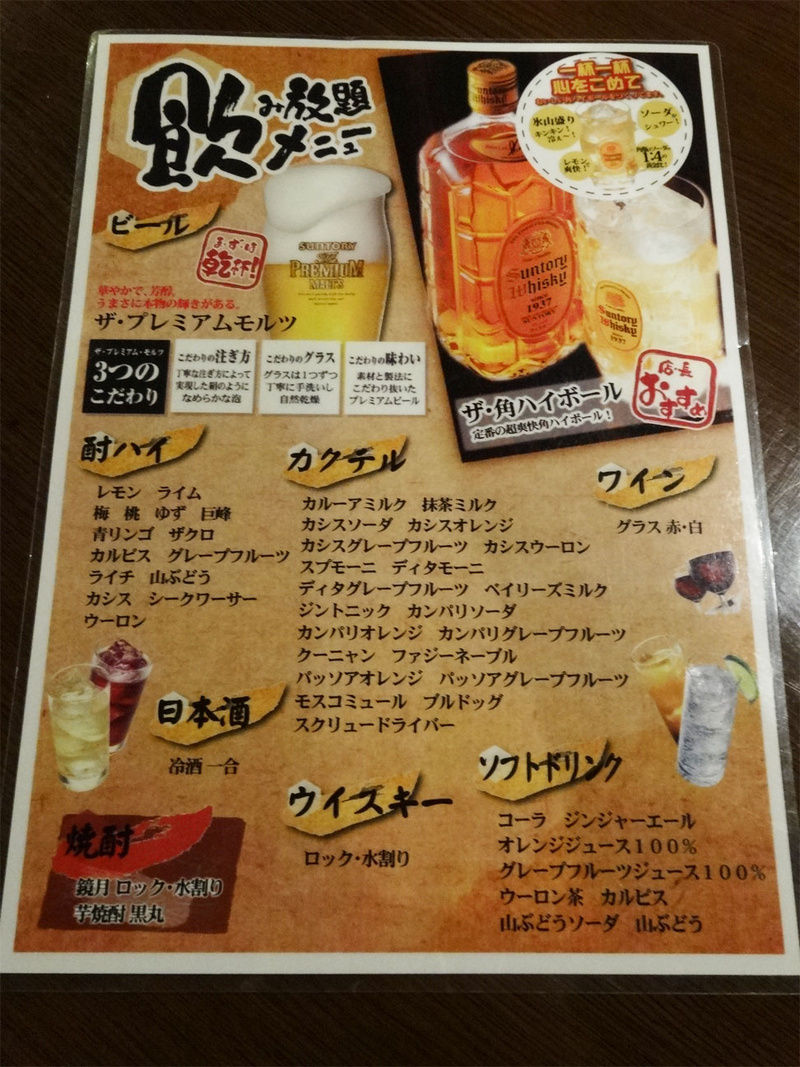 飲み放題
メニュー
ビール
まずは
乾杯!
SUNTORY
The
PREMIUM
MALT'S
華やかで、芳醇。
うまさに本物の輝きがある。
ザ・プレミアムモルツ
ザ・プレミアム・モルツ
3つの
こだわり
こだわりの注ぎ方
丁寧な注ぎ方によって
実現した絹のように
なめらかな泡
こだわりのグラス
グラスは1つずつ
丁寧に手洗いし
自然乾燥
こだわりの味わい
素材と製法に
こだわり抜いた
プレミアムビール
Suntory
Whisky
Suntory
Whisky
SINCE
1937
一杯一杯
心をこめて
氷山盛り
キンキン!
冷え〜!
ソーダが
シュワー!
レモン
爽快!
1:4の
Suntory
Whisky
1937
ザ・角ハイボール
定番の超爽快角ハイボール!
店・長
おすすめ
酎ハイ
レモン ライム
梅 桃 ゆず 巨峰
青リンゴ ザクロ
カルピス グレープフルーツ
ライチ 山ぶどう
カシス シークワーサー
ウーロン
カクテル
カルーアミルク 抹茶ミルク
カシスソーダ カシスオレンジ
カシスグレープフルーツ カシスウーロン
スプモーニ ディタモーニ
ディタグレープフルーツ ベイリーズミルク
ジントニック カンパリソーダ
カンパリオレンジ カンパリグレープフルーツ
クーニャン ファジーネーブル
パッソアオレンジ パッソアグレープフルーツ
モスコミュール ブルドッグ
スクリュードライバー
ワイン
グラス 赤・白
日本酒
冷酒 一合
焼酎
鏡月 ロック・水割り
芋焼酎 黒丸
ウイスキー
ロック・水割り
ソフトドリンク
コーラ ジンジャーエール
オレンジジュース100%
グレープフルーツジュース100%
ウーロン茶 カルピス
山ぶどうソーダ 山ぶどう